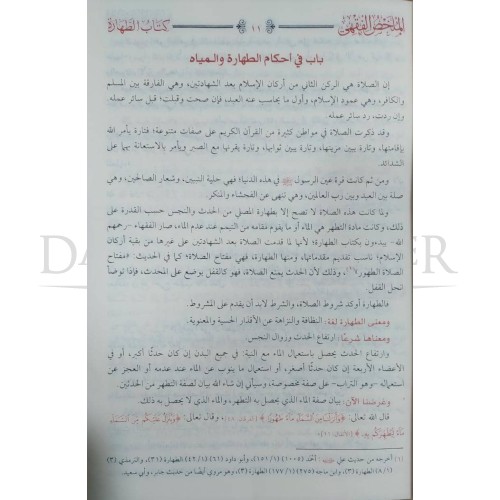 الملخص الفقهي
١١
كتاب الطهارة
باب في أحكام الطهارة والمياه
إن الصلاة هي الركن الثاني من أركان الإسلام بعد الشهادتين، وهي الفارقة بين المسلم
والكافر، وهي عمود الإسلام، وأول ما يحاسب عنه العبد، فإن صحت وقبلت؛ قبل سائر عمله
وإن ردت، رد سائر عمله.
وقد ذكرت الصلاة في مواطن كثيرة من القرآن الكريم على صفات متنوعة؛ فتارة يأمر الله
بإقامتها، وتارة يبين مزيتها، وتارة يبين ثوابها، وتارة يقرنها مع الصبر ويأمر بالاستعانة بهما على
الشدائد.
ومن ثم كانت قرة عين الرسول ﷺ في هذه الدنيا؛ فهي حلية النبيين، وشعار الصالحين، وهي
صلة بين العبد وبين رب العالمين، وهي تنهى عن الفحشاء والمنكر.
ولما كانت هذه الصلاة لا تصح إلا بطهارة المصلي من الحدث والنجس حسب القدرة على
ذلك، وكانت مادة التطهر هي الماء أو ما يقوم مقامه من التيمم عند عدم الماء، صار الفقهاء -رحمهم
الله- يبدءون بكتاب الطهارة؛ لأنها لما قدمت الصلاة بعد الشهادتين على غيرها من بقية أركان
الإسلام؛ ناسب تقديم مقدماتها، ومنها الطهارة، فهي مفتاح الصلاة؛ كما في الحديث: «مفتاح
الصلاة الطهور»(١)، وذلك لأن الحدث يمنع الصلاة، فهو كالقفل يوضع على المحدث، فإذا توضأ
انحل القفل.
فالطهارة أوكد شروط الصلاة، والشرط لابد أن يقدم على المشروط.
ومعنى الطهارة لغة: النظافة والنزاهة عن الأقذار الحسية والمعنوية.
ومعناها شرعًا: ارتفاع الحدث وزوال النجس.
وارتفاع الحدث يحصل باستعمال الماء مع النية: في جميع البدن إن كان حدثًا أكبر، أو في
الأعضاء الأربعة إن كان حدثًا أصغر، أو استعمال ما ينوب عن الماء عند عدمه أو العجز عن
استعماله -وهو التراب- على صفة مخصوصة، وسيأتي إن شاء الله بيان لصفة التطهر من الحدثين.
وغرضنا الآن: بيان صفة الماء الذي يحصل به التطهر، والماء الذي لا يحصل به ذلك.
قال الله تعالى: ﴿وَأَنزَلْنَا مِنَ السَّمَاءِ مَاءً طَهُورًا﴾ [الفرقان: ٤٨]، وقال تعالى: ﴿وَيُنَزِّلُ عَلَيْكُم مِّنَ السَّمَاءِ
مَاءً لِّيُطَهِّرَكُم بِهِ﴾ [الأنفال: ١١].
(١) أخرجه من حديث علي: أحمد (١٠٠٥) (١/١٥١)، وأبو داود (٦١) (١/٤٢) الطهارة (٣١)، والترمذي (٣)
(١/٨) الطهارة (٣)، وابن ماجه (٢٧٥) (١/١٧٧) الطهارة (٣)، وهو مروي أيضًا من حديث جابر، وأبي سعيد.